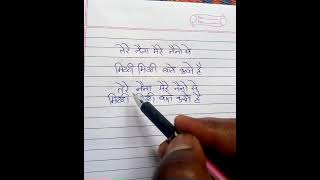 तेरे नैना मेरे नैनो से
मिठी मिठी बाते करते है
तेरे नैना मेरे नैनो से
मिठी मिठी बाते करते है